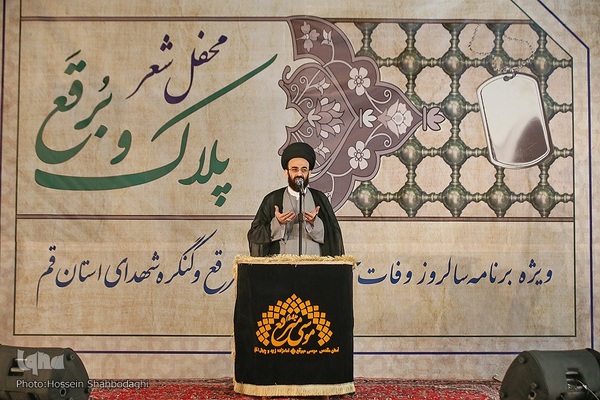 محفل شعر
پلاک و بُرقَع
ویژه برنامه سالروز وفات
رقع و کنگره شهدای استان قم
موسی مبرقع
iqna
Photo:Hossein Shahbodaghi